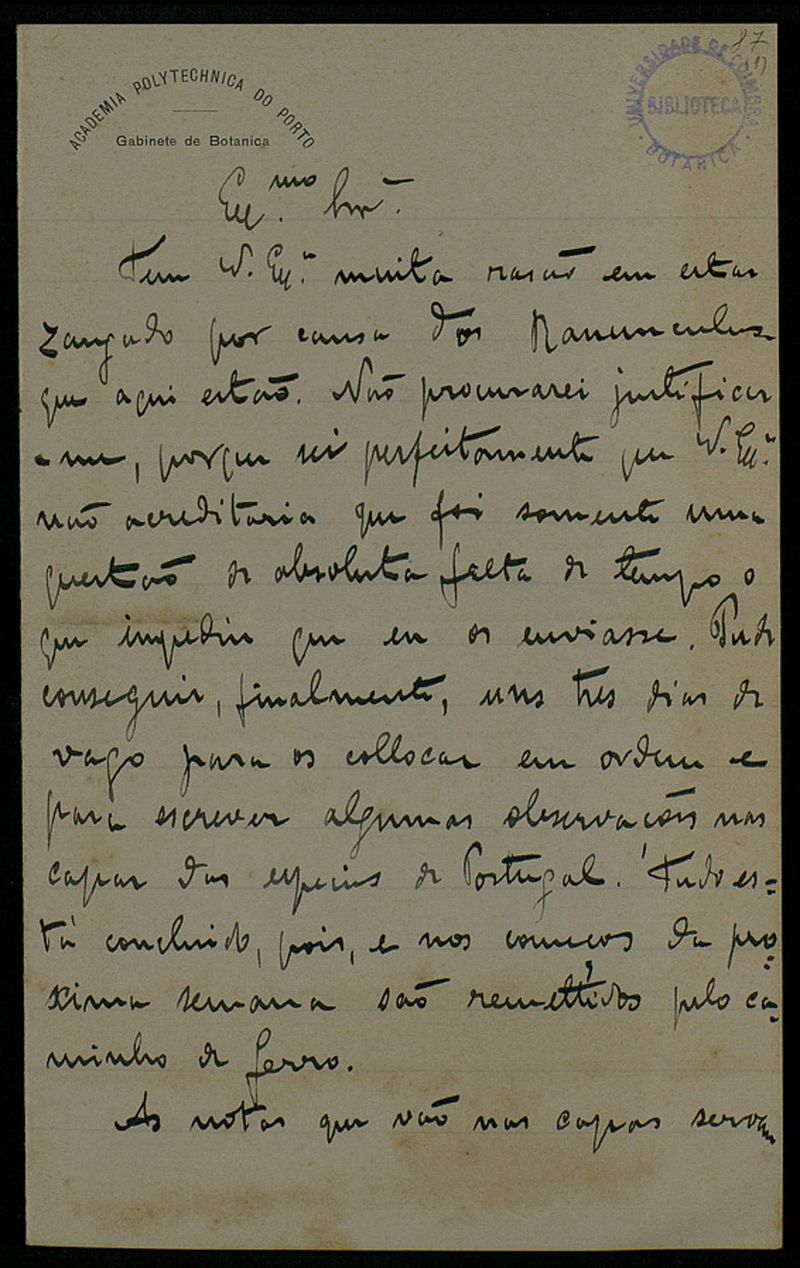 87
(1)
ACADEMIA POLYTECHNICA DO PORTO
Gabinete de Botanica
UNIVERSIDADE DE COIMBRA
BIBLIOTECA
BOTANICA
Ex.mo Snr.
Tem V. Ex.ª muita rasão em estar
zangado por causa dos Ranunculus
que aqui estão. Não procurarei justificar
-me, porque sei perfeitamente que V. Ex.ª
não acreditaria que foi somente uma
questão de absoluta falta de tempo o
que impediu que eu os enviasse. Pude
conseguir, finalmente, uns tres dias de
vago para os collocar em ordem e
para escrever algumas observações nas
capas das especies de Portugal. Tudo es=
tá concluido, pois, e nos começos da pro=
xima semana são remettidos pelo ca=
minho de ferro.
As notas que vão nas capas servem